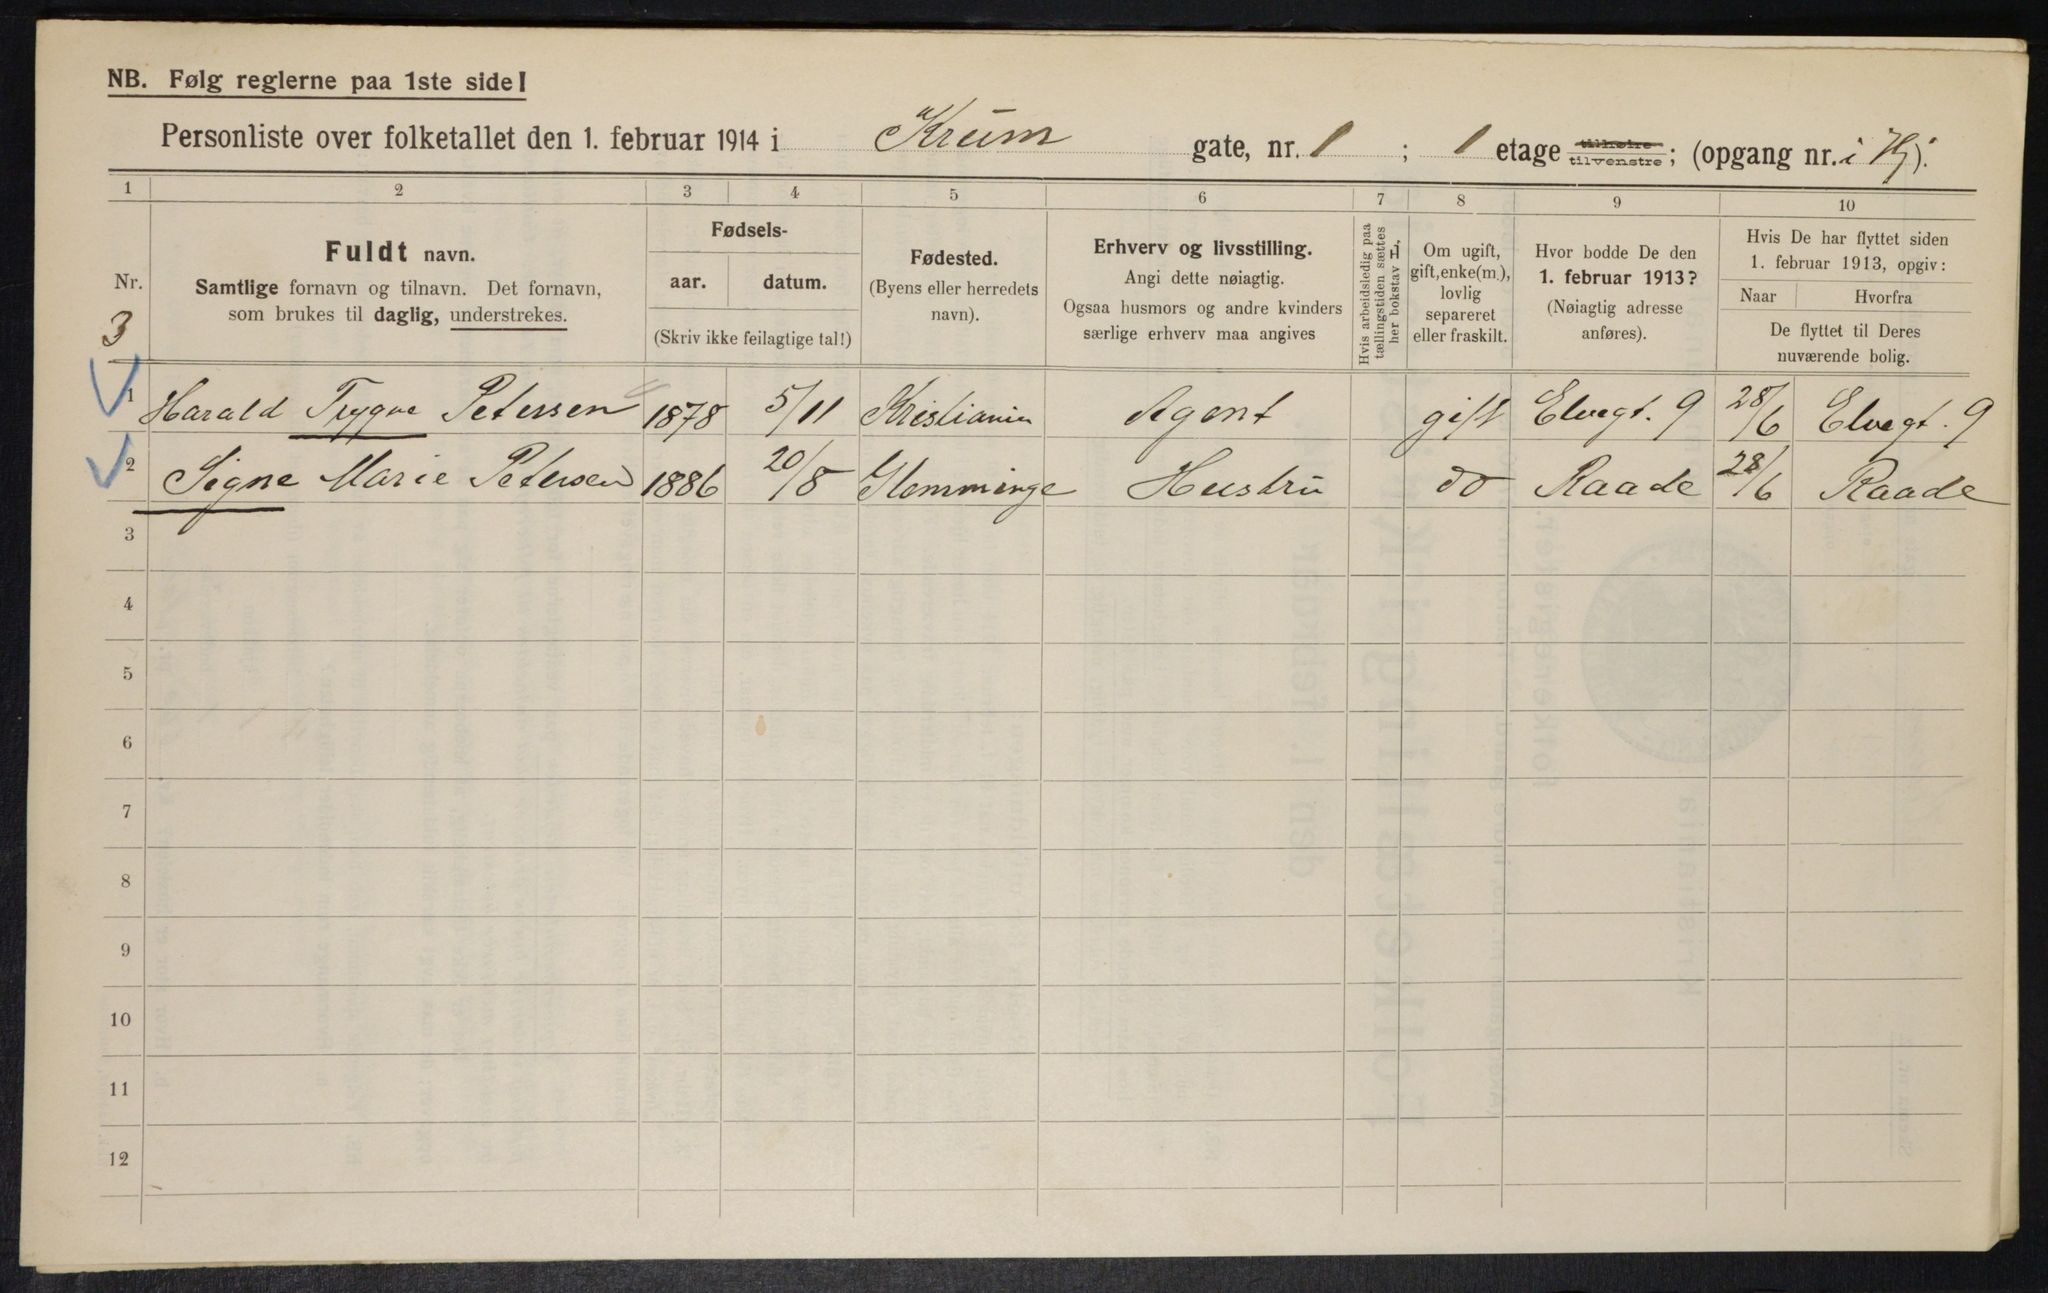 NB. Følg reglerne paa 1ste side!
Personliste over folketallet den 1. februar 1914 i Krum gate, nr. 1 ; 1 etage tilhøire tilvenstre ; (opgang nr. i Hj).
1 2 3 4 5 6 7 8 9 10
Nr.
3
Fuldt navn.
Samtlige fornavn og tilnavn. Det fornavn,
som brukes til daglig, understrekes.
Fødsels-
aar. datum.
(Skriv ikke feilagtige tal!)
Fødested.
(Byens eller herredets
navn).
Erhverv og livsstilling.
Angi dette nøiagtig.
Ogsaa husmors og andre kvinders
særlige erhverv maa angives
Hvis arbeidsledig paa
tællingstiden sættes
her bokstav L.
Om ugift,
gift, enke(m.),
lovlig
separeret
eller fraskilt.
Hvor bodde De den
1. februar 1913?
(Nøiagtig adresse
anføres).
Hvis De har flyttet siden
1. februar 1913, opgiv:
Naar Hvorfra
De flyttet til Deres
nuværende bolig.
1 Harald Trygve Petersen 1878 5/11 Kristiania Agent gift Elvegt. 9 28/6 Elvegt. 9
2 Signe Marie Petersen 1886 20/8 Glemminge Hustru do Raade 28/6 Raade
3
4
5
6
7
8
9
10
11
12